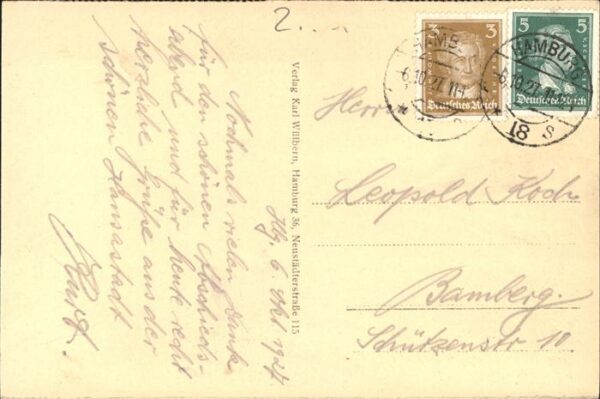 2....
Hbg. 6. Okt 1927
Nochmals vielen Dank
für den schönen Abschieds-
abend und für heute recht
herzliche Grüße aus der
schönen Hansastadt
Kurt.
Verlag Karl Wülbern, Hamburg 36, Neustädterstraße 115
3 3
Deutsches Reich
5 5
Deutsches Reich
HAMBURG
6.10.27
18
Herrn
Leopold Koch
Bamberg.
Schützenstr 10